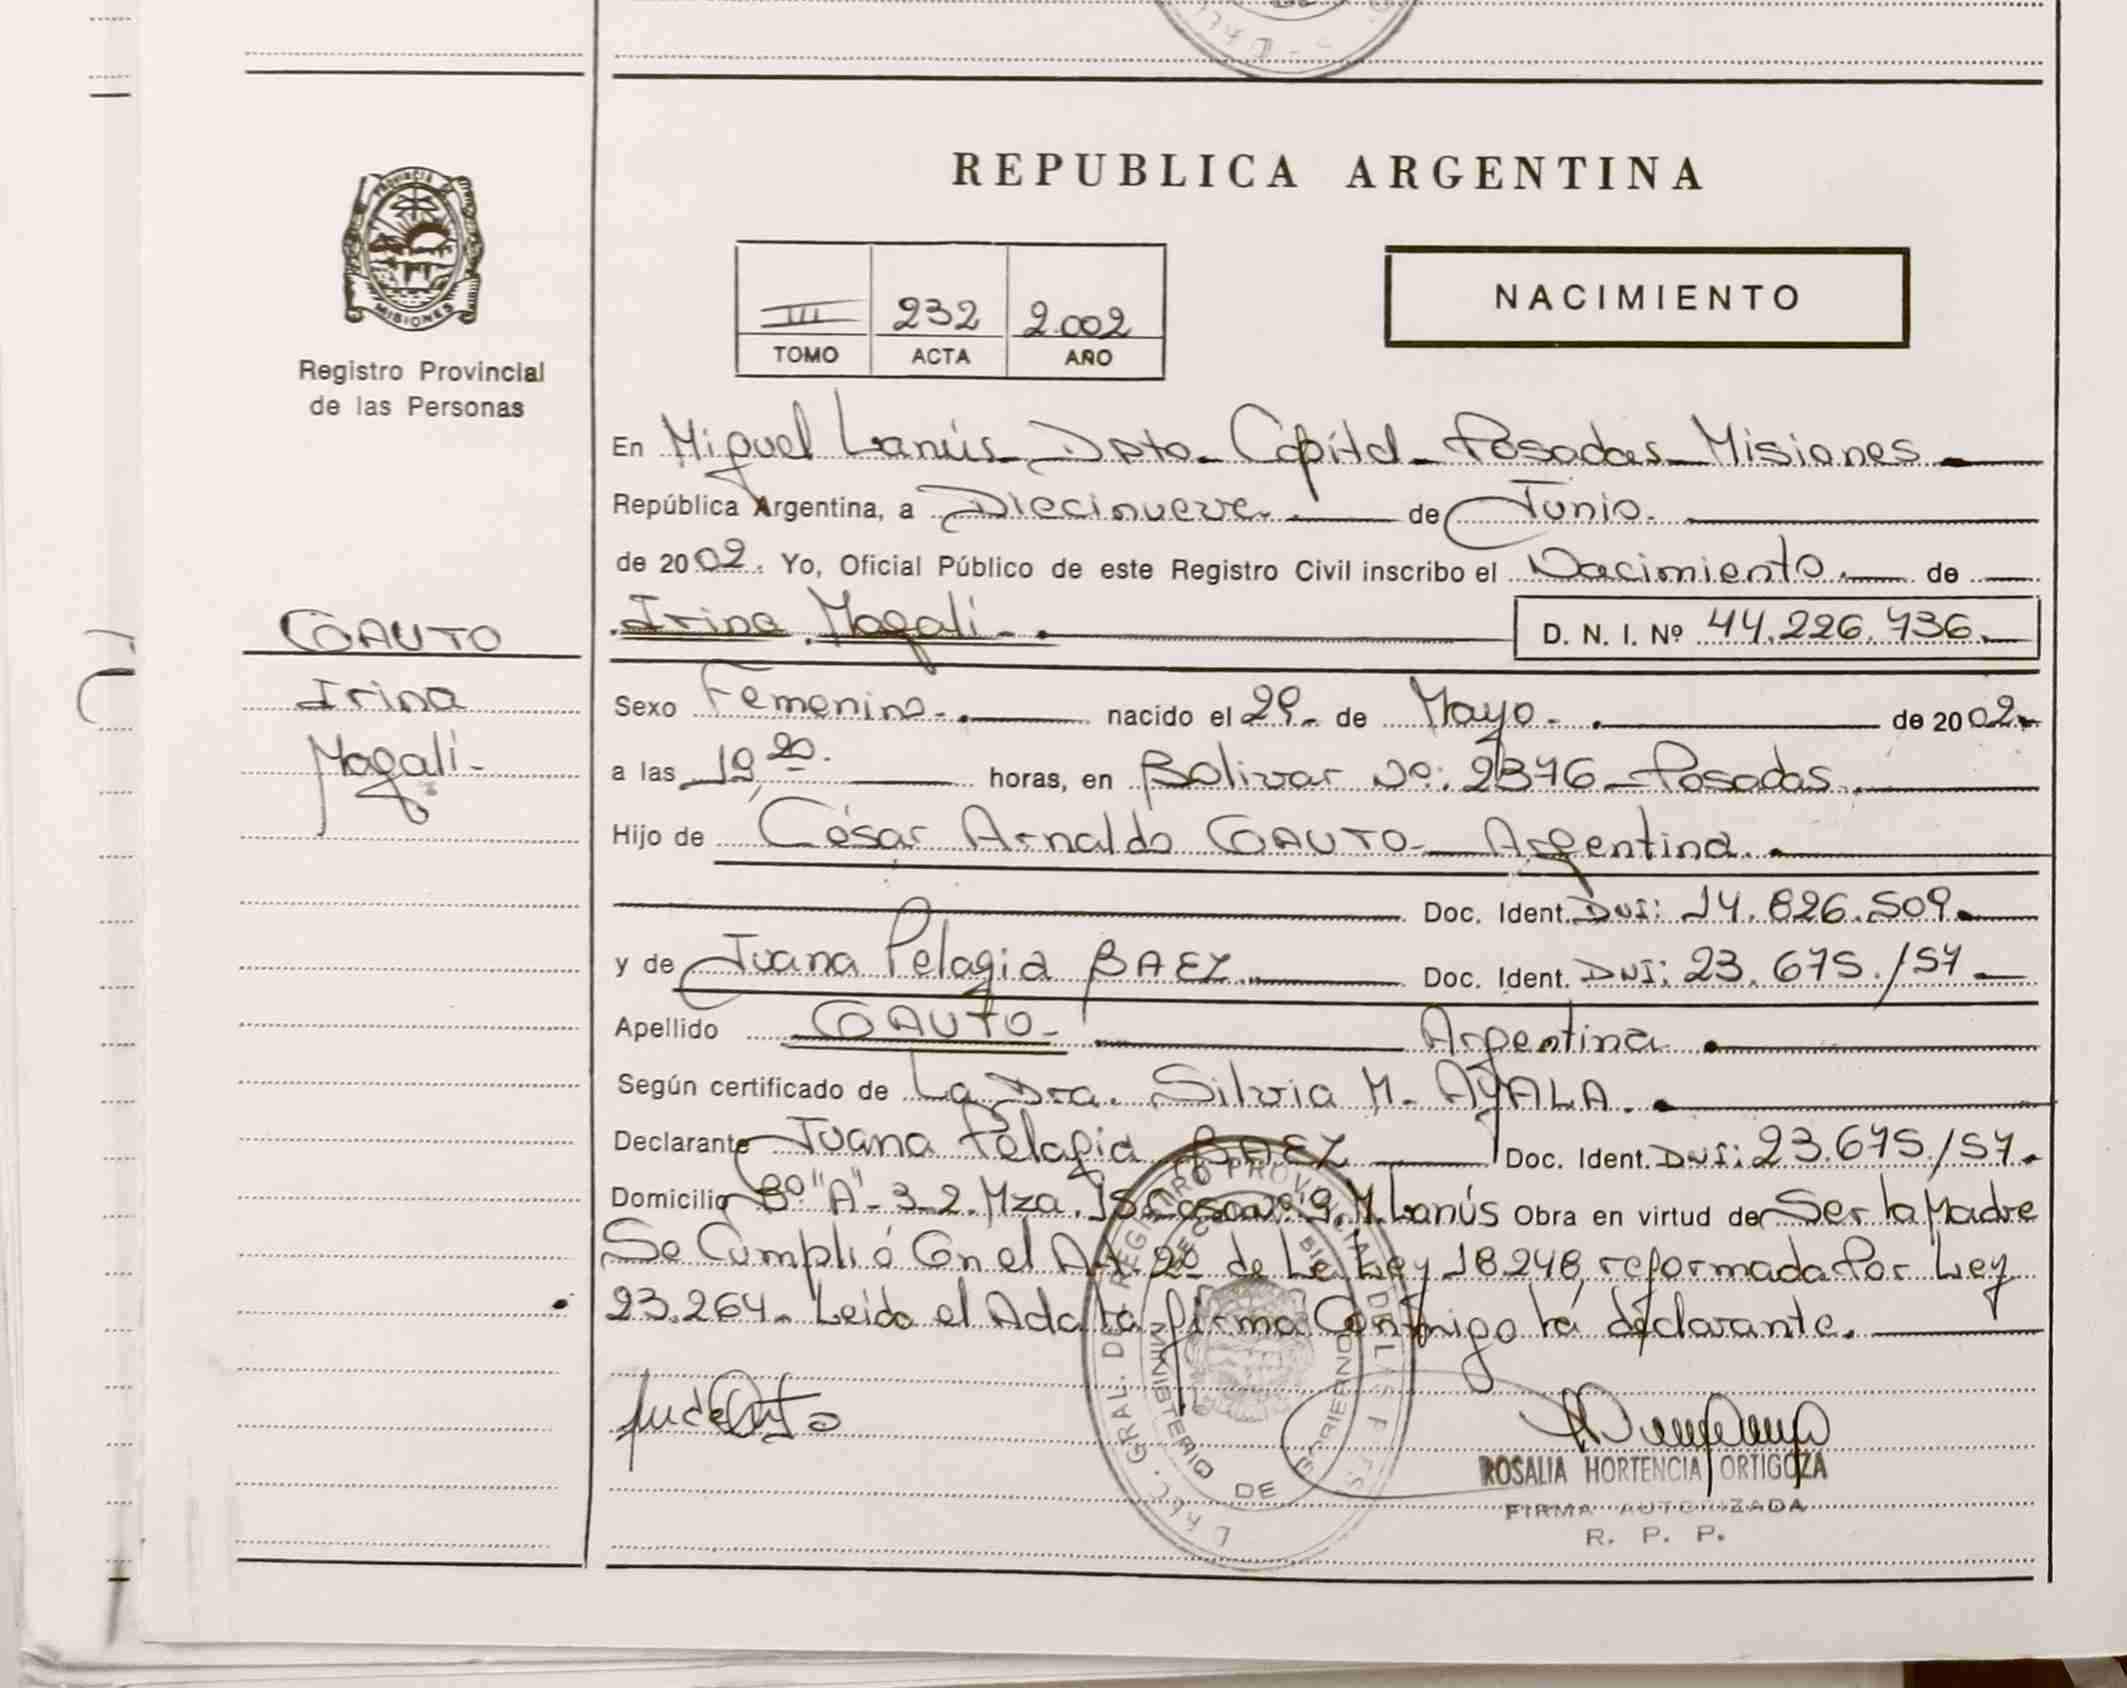 REPUBLICA ARGENTINA
PROVINCIA DE
MISIONES
Registro Provincial
de las Personas
III 232 2.002
TOMO ACTA AÑO
NACIMIENTO
En Miguel Lanús - Dpto - Capital - Posadas - Misiones -
República Argentina, a Diecinueve - de Junio.
de 2002. Yo, Oficial Público de este Registro Civil inscribo el Nacimiento - de
Irina Magali - D. N. I. Nº 44.226.736.
COAUTO
Irina
Magali -
Sexo Femenino - nacido el 29 - de Mayo - de 2002 -
a las 19,20. horas, en Bolivar Nº: 2376 - Posadas.
Hijo de César Arnaldo COAUTO - Argentina.
Doc. Ident. DNI: 14.826.509
y de Juana Pelagia BAEZ - Doc. Ident. DNI: 23.675.157 -
Apellido COAUTO - Argentina
Según certificado de La Dra. Silvia M. AYALA.
Declarante Juana Pelagia BAEZ Doc. Ident. DNI: 23.675.157.
Domicilio Bº "A" - 3-2. Mza. 15 Casa nº 9. M. Lanús Obra en virtud de Ser la Madre
Se Cumplió Con el Art. 2º de La Ley 18.248, reformada Por Ley
23.264 - Leido el Acta la firma Conmigo la declarante.
ROSALIA HORTENCIA ORTIGOZA
FIRMA AUTORIZADA
R. P. P.
DIREC. GRAL. DE REGISTRO PROVINCIAL DE LAS PERS.
MINISTERIO DE GOBIERNO